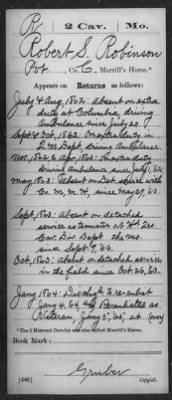 R | 2 Cav. | Mo.
Robert S. Robinson
Pvt, Co. C, Merrill's Horse.*
Appears on Returns as follows:
July & Aug, 1862: absent on extra
duty at Columbia, driving
Ambulance since July 20.
Sept & Oct, 1862: On extra duty in
Q M Dept, driving Ambulance.
Nov, 1862 to Apr, 1863: On extra duty
driving ambulance since July 1, 62
May, 1863: Absent on Det. Service with
Co. M, M. H, since May 29, 63.
Sept, 1863: absent on detached
service as teamster at Hd Qrs.
Cav. Div. Dept. the Mo.
since Sept 9, 63.
Oct, 1863: absent on detached service
in the field since Oct 26, 63.
Jany 1864: Disch'd to re-enlist
Jany 4, 64. as
Veteran, Jany 5, 64, at (over)
*The 2 Missouri Cavalry was also called Merrill's Horse.
Book Mark:
Gruber
(546) Copyist.